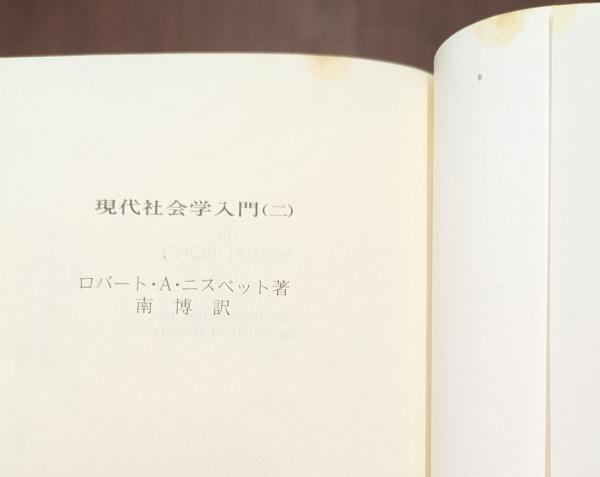 現代社会学入門(二)
The
SOCIAL BOND
ロバート・A・ニスベット著
南 博 訳
An Introduction to
the Study of Society